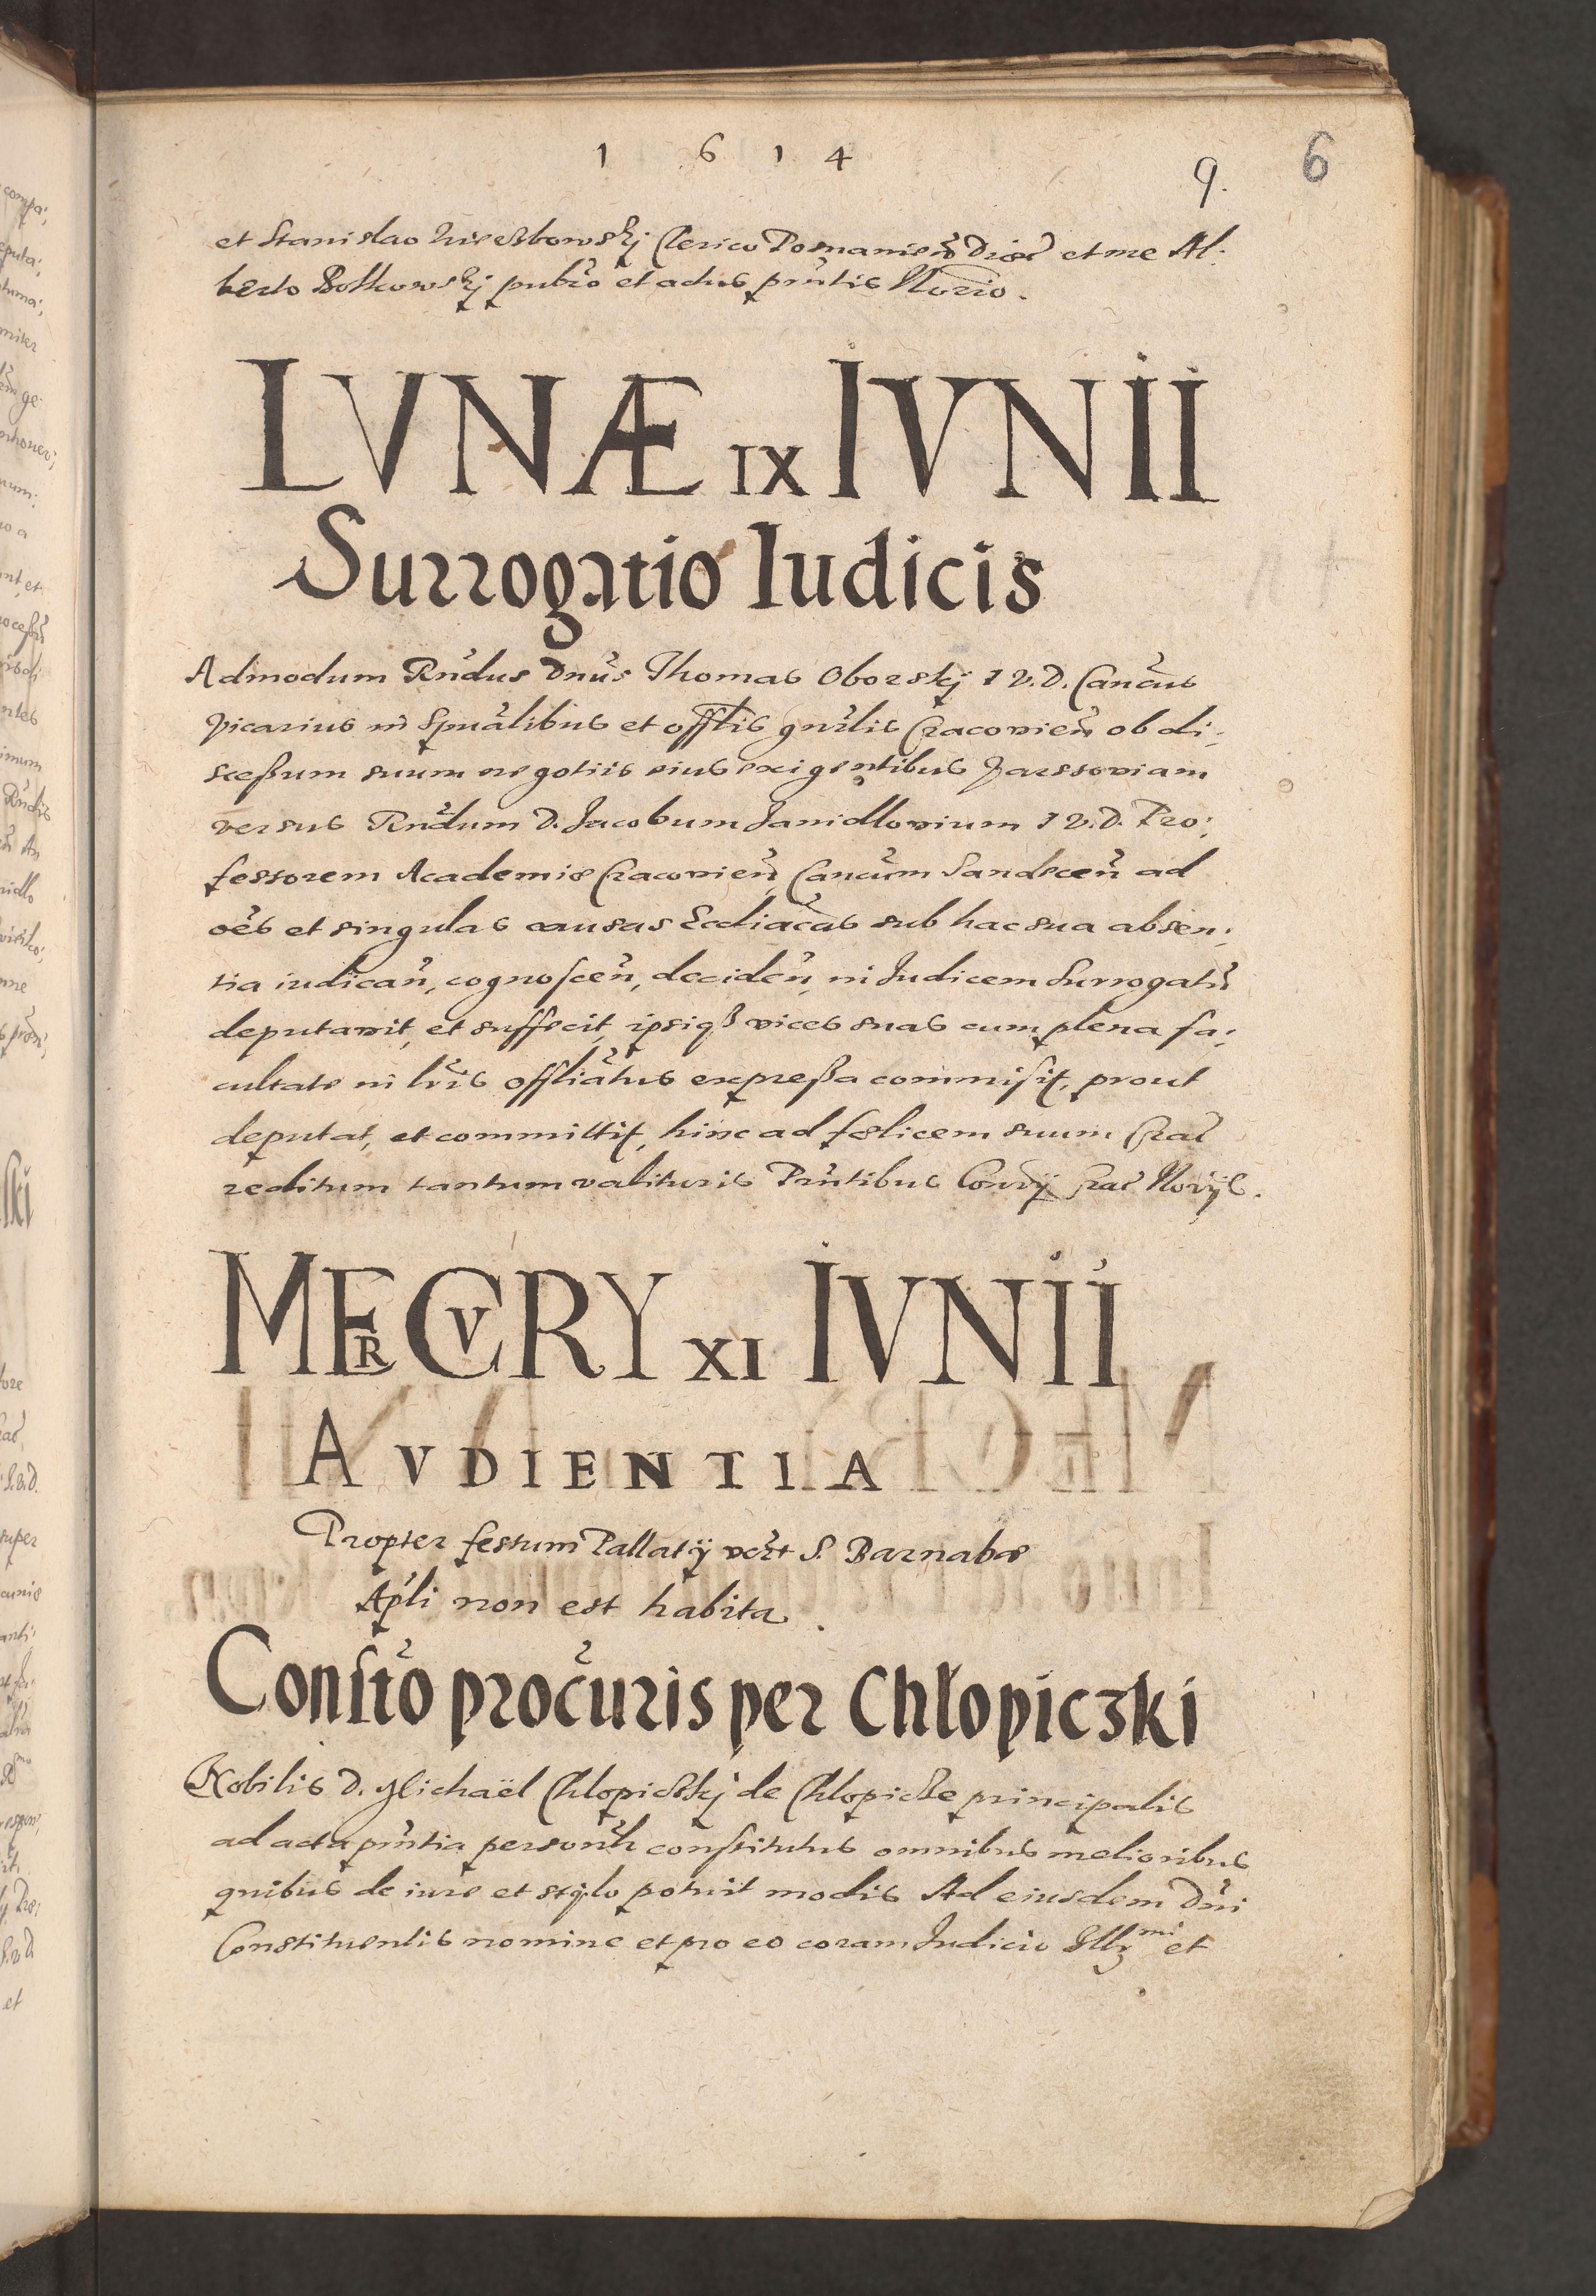 1 6 1 4
9. 6
et Stanislao Clerico Posnanien̄ Diœc̄ et me Al:
berto Bolkowskj pub̄co et actus pn̄tis Nor̄io.
LVNÆ IX IVNII
Surrogatio Iudicis
Admodum Rn̄dus Dn̄us Thomas Oborskj I V. D. Canc̄us
Vicarius in Spūalibus et offlis gnr̄lis Cracovien̄ ob di:
sceßum suum negotiis eius exigentibus Varssoviam
versus Rn̄dum D. Jacobum Janidlovium I V. D. Pro:
fessorem Academiæ Cracovien̄ Canc̄um Sandecen̄ ad
oēs et singulas causas Eccliac̄as sub hac sua absen:
tia iudican̄, cognoscen̄, deciden̄, in Judicem Surrogatū
deputavit, et suffecit, ipsiqꝫ vices suas cum plena fa:
cultate in lr̄is offliātus expreßa commisit, prout
deputat, et committit, hinc ad fœlicem suum Crac̄
reditum tantum valituris Pn̄tibus Conr̄ij Crac̄ Nor̄ijs.
MERCVRY XI IVNII
AVDIENTIA
Propter festum Pallatÿ vcr̄t S. Barnabæ
Ap̄li non est habita.
Consto͞ procu͞ris per Chłopiczki
Nobilis D. Michaël Chlopickj de Chlopicze principalis
ad acta pn̄tia personlr̄ constitutus omnibus melioribus
quibus de iure et stylo potuit modis Ad eiusdem Dn̄i
Constituentis nomine et pro eo coram Judicio Illr̄mi et